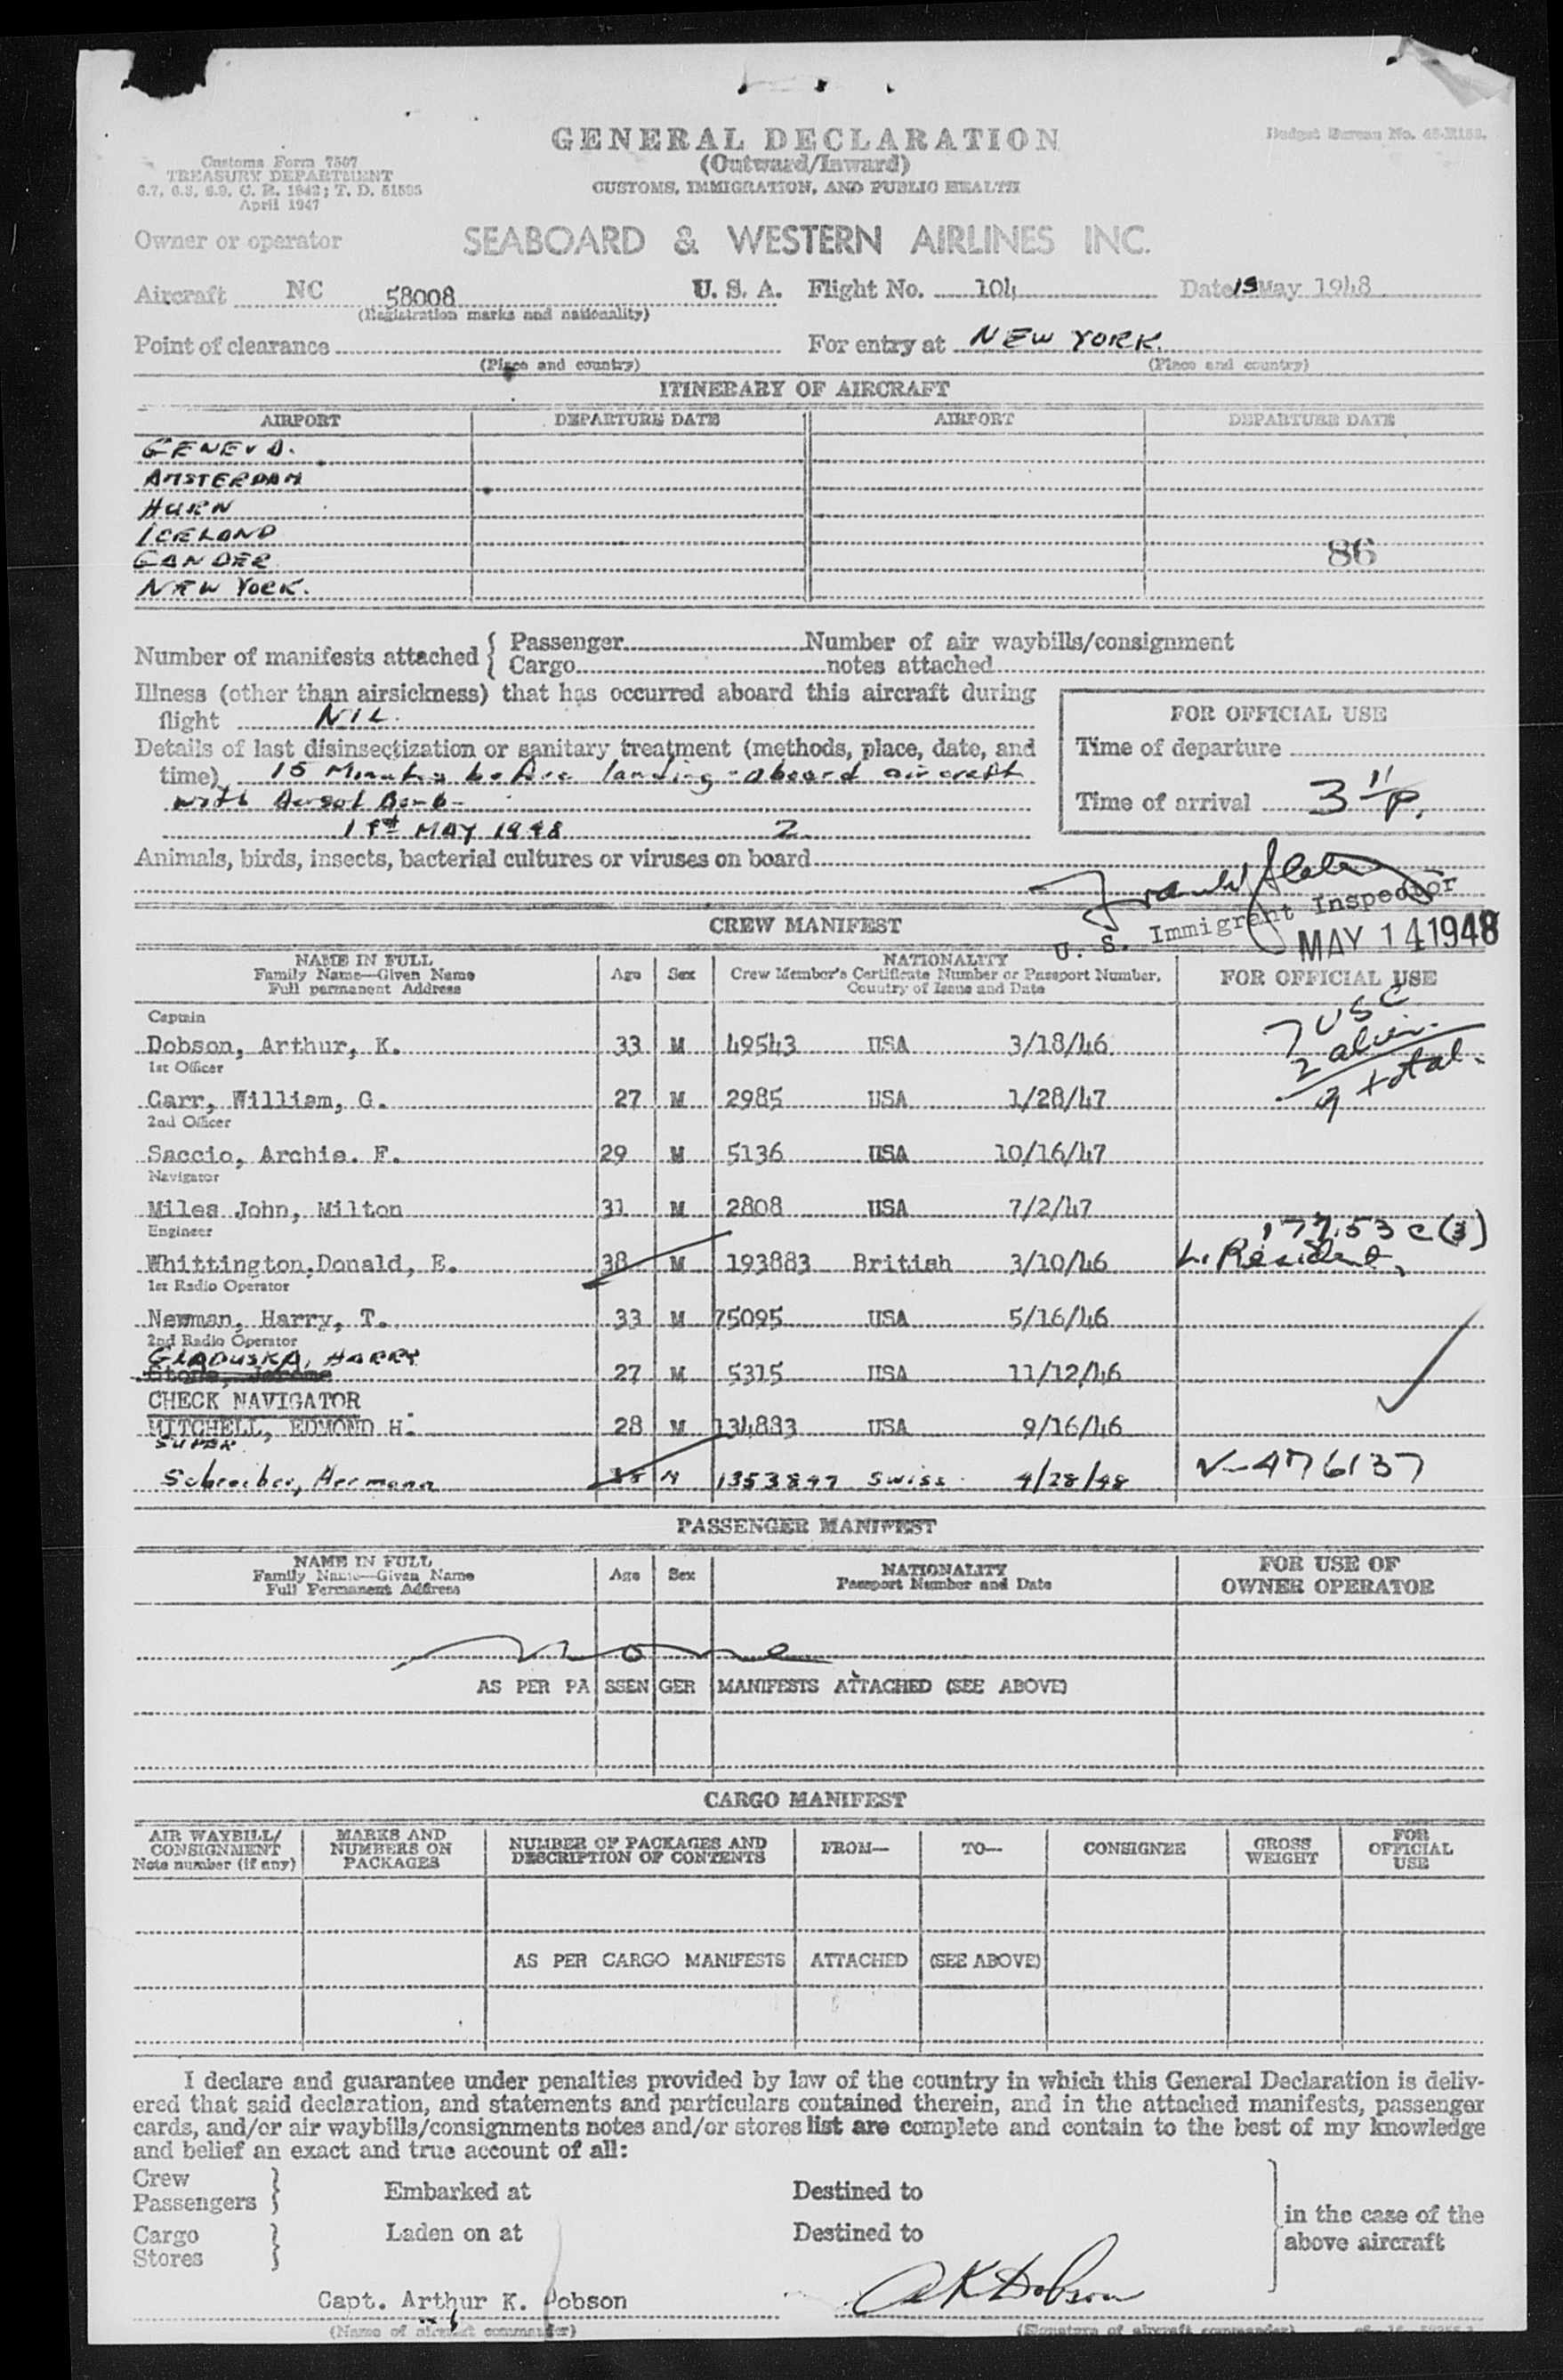 GENERAL DECLARATION
(Outward/Inward)
CUSTOMS, IMMIGRATION, AND PUBLIC HEALTH
Budget Bureau No.
Customs Form 7507
TREASURY DEPARTMENT
April 1947
Owner or operator SEABOARD & WESTERN AIRLINES INC.
Aircraft NC 58008 U. S. A. Flight No. 104 Date May 1948
(Registration marks and nationality)
Point of clearance For entry at NEW YORK.
(Place and country) (Place and country)
ITINERARY OF AIRCRAFT
AIRPORT DEPARTURE DATE AIRPORT DEPARTURE DATE
GENEVA.
AMSTERDAM
HURN
ICELAND
GANDER
NEW YORK.
86
Number of manifests attached { Passenger Number of air waybills/consignment
Cargo notes attached
Illness (other than airsickness) that has occurred aboard this aircraft during
flight NIL.
Details of last disinsectization or sanitary treatment (methods, place, date, and
time) 15 Minutes before landing - aboard aircraft
with Aersol Bomb -
MAY 1948 2
FOR OFFICIAL USE
Time of departure
Time of arrival 3 11/P.
Animals, birds, insects, bacterial cultures or viruses on board
U. S. Immigrant Inspector
MAY 14 1948
CREW MANIFEST
NAME IN FULL
Family Name—Given Name
Full permanent Address
Age Sex
NATIONALITY
Crew Member's Certificate Number or Passport Number,
Country of Issue and Date
FOR OFFICIAL USE
7 USC
2 alien.
9 total.
Captain
Dobson, Arthur, K. 33 M 49543 USA 3/18/46
1st Officer
Carr, William, G. 27 M 2985 USA 1/28/47
2nd Officer
Saccio, Archie. F. 29 M 5136 USA 10/16/47
Navigator
Miles John, Milton 31 M 2808 USA 7/2/47
Engineer
Whittington,Donald, E. 38 M 193883 British 3/10/46 177.53 c (3)
L. Resident.
1st Radio Operator
Newman, Harry, T. 33 M 75095 USA 5/16/46
2nd Radio Operator
GLADUSKA, HARRY
Stone, Jerome 27 M 5315 USA 11/12/46
CHECK NAVIGATOR
MITCHELL, EDMOND H. 28 M 134883 USA 9/16/46
SUPER
Schreiber, Hermann 38 M 1353847 Swiss 4/28/48 V-476137
PASSENGER MANIFEST
NAME IN FULL
Family Name—Given Name
Full Permanent Address
Age Sex
NATIONALITY
Passport Number and Date
FOR USE OF
OWNER OPERATOR
None
AS PER PASSENGER MANIFESTS ATTACHED (SEE ABOVE)
CARGO MANIFEST
AIR WAYBILL/
CONSIGNMENT
Note number (if any)
MARKS AND
NUMBERS ON
PACKAGES
NUMBER OF PACKAGES AND
DESCRIPTION OF CONTENTS
FROM—
TO—
CONSIGNEE
GROSS
WEIGHT
FOR
OFFICIAL
USE
AS PER CARGO MANIFESTS ATTACHED (SEE ABOVE)
I declare and guarantee under penalties provided by law of the country in which this General Declaration is deliv-
ered that said declaration, and statements and particulars contained therein, and in the attached manifests, passenger
cards, and/or air waybills/consignments notes and/or stores list are complete and contain to the best of my knowledge
and belief an exact and true account of all:
Crew
Passengers } Embarked at Destined to
Cargo
Stores } Laden on at Destined to
in the case of the
above aircraft
Capt. Arthur K. Dobson A K Dobson
(Name of aircraft commander) (Signature of aircraft commander)